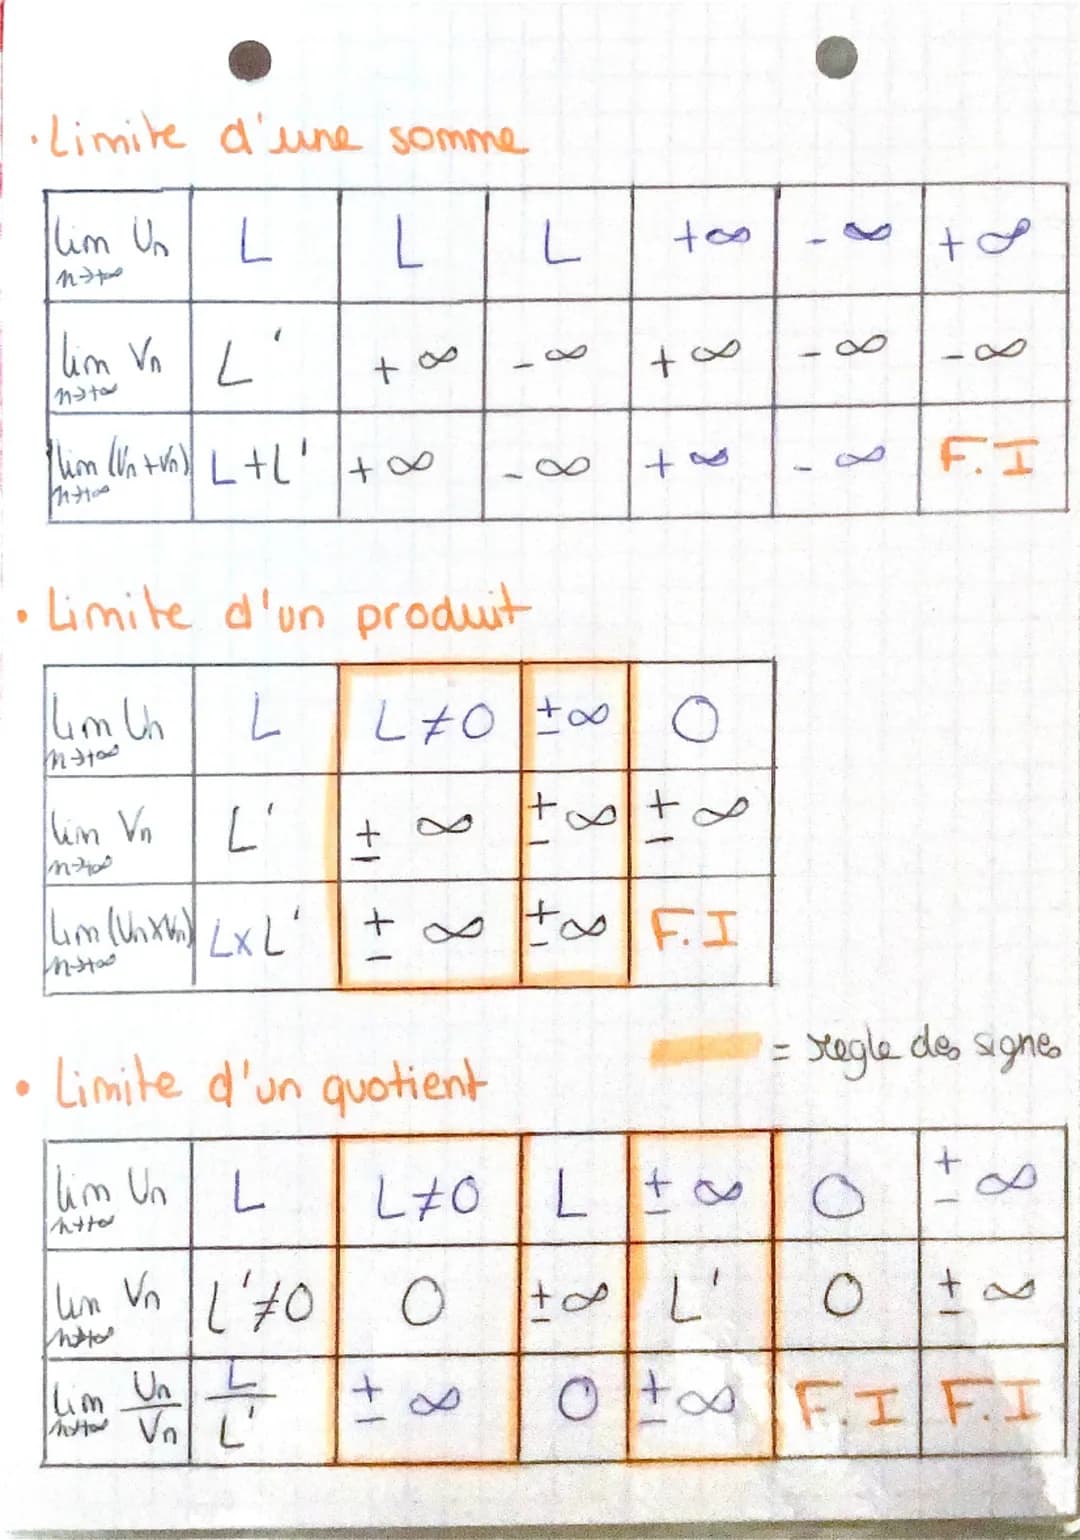 • Limite d'une somme
lim Un n→+∞ | L | L | L | +∞ | -∞ | +∞
lim Vn n→+∞ | L' | +∞ | -∞ | +∞ | -∞ | -∞
lim (Un+Vn) n→+∞ | L+L' | +∞ | -∞ | +∞ | -∞ | F.I
• Limite d'un produit
lim Un n→+∞ | L | L≠0 | ±∞ | 0
lim Vn n→+∞ | L' | ±∞ | ±∞ | ±∞
lim (Un×Vn) n→+∞ | L×L' | ±∞ | ±∞ | F.I
= regle des signes
• Limite d'un quotient
lim Un n→+∞ | L | L≠0 | L | ±∞ | 0 | ±∞
lim Vn n→+∞ | L'≠0 | 0 | ±∞ | L' | 0 | ±∞
lim Un/Vn n→+∞ | L/L' | ±∞ | 0 | ±∞ | F.I | F.I